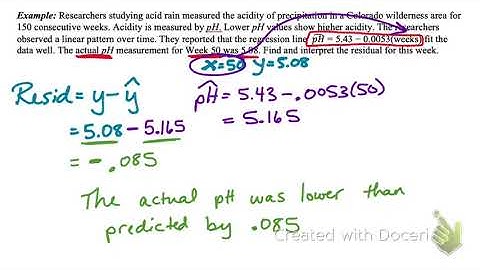 Example: Researchers studying acid rain measured the acidity of precipitation in a Colorado wilderness area for
150 consecutive weeks. Acidity is measured by pH. Lower pH values show higher acidity. The researchers
observed a linear pattern over time. They reported that the regression line pH = 5.43 − 0.0053(weeks) fit the
data well. The actual pH measurement for Week 50 was 5.08. Find and interpret the residual for this week.
x=50 y=5.08
Resid = y-ŷ
= 5.08 - 5.165
= -.085
p̂H = 5.43 - .0053(50)
= 5.165
The actual pH was lower than
predicted by .085
Created with Doceri